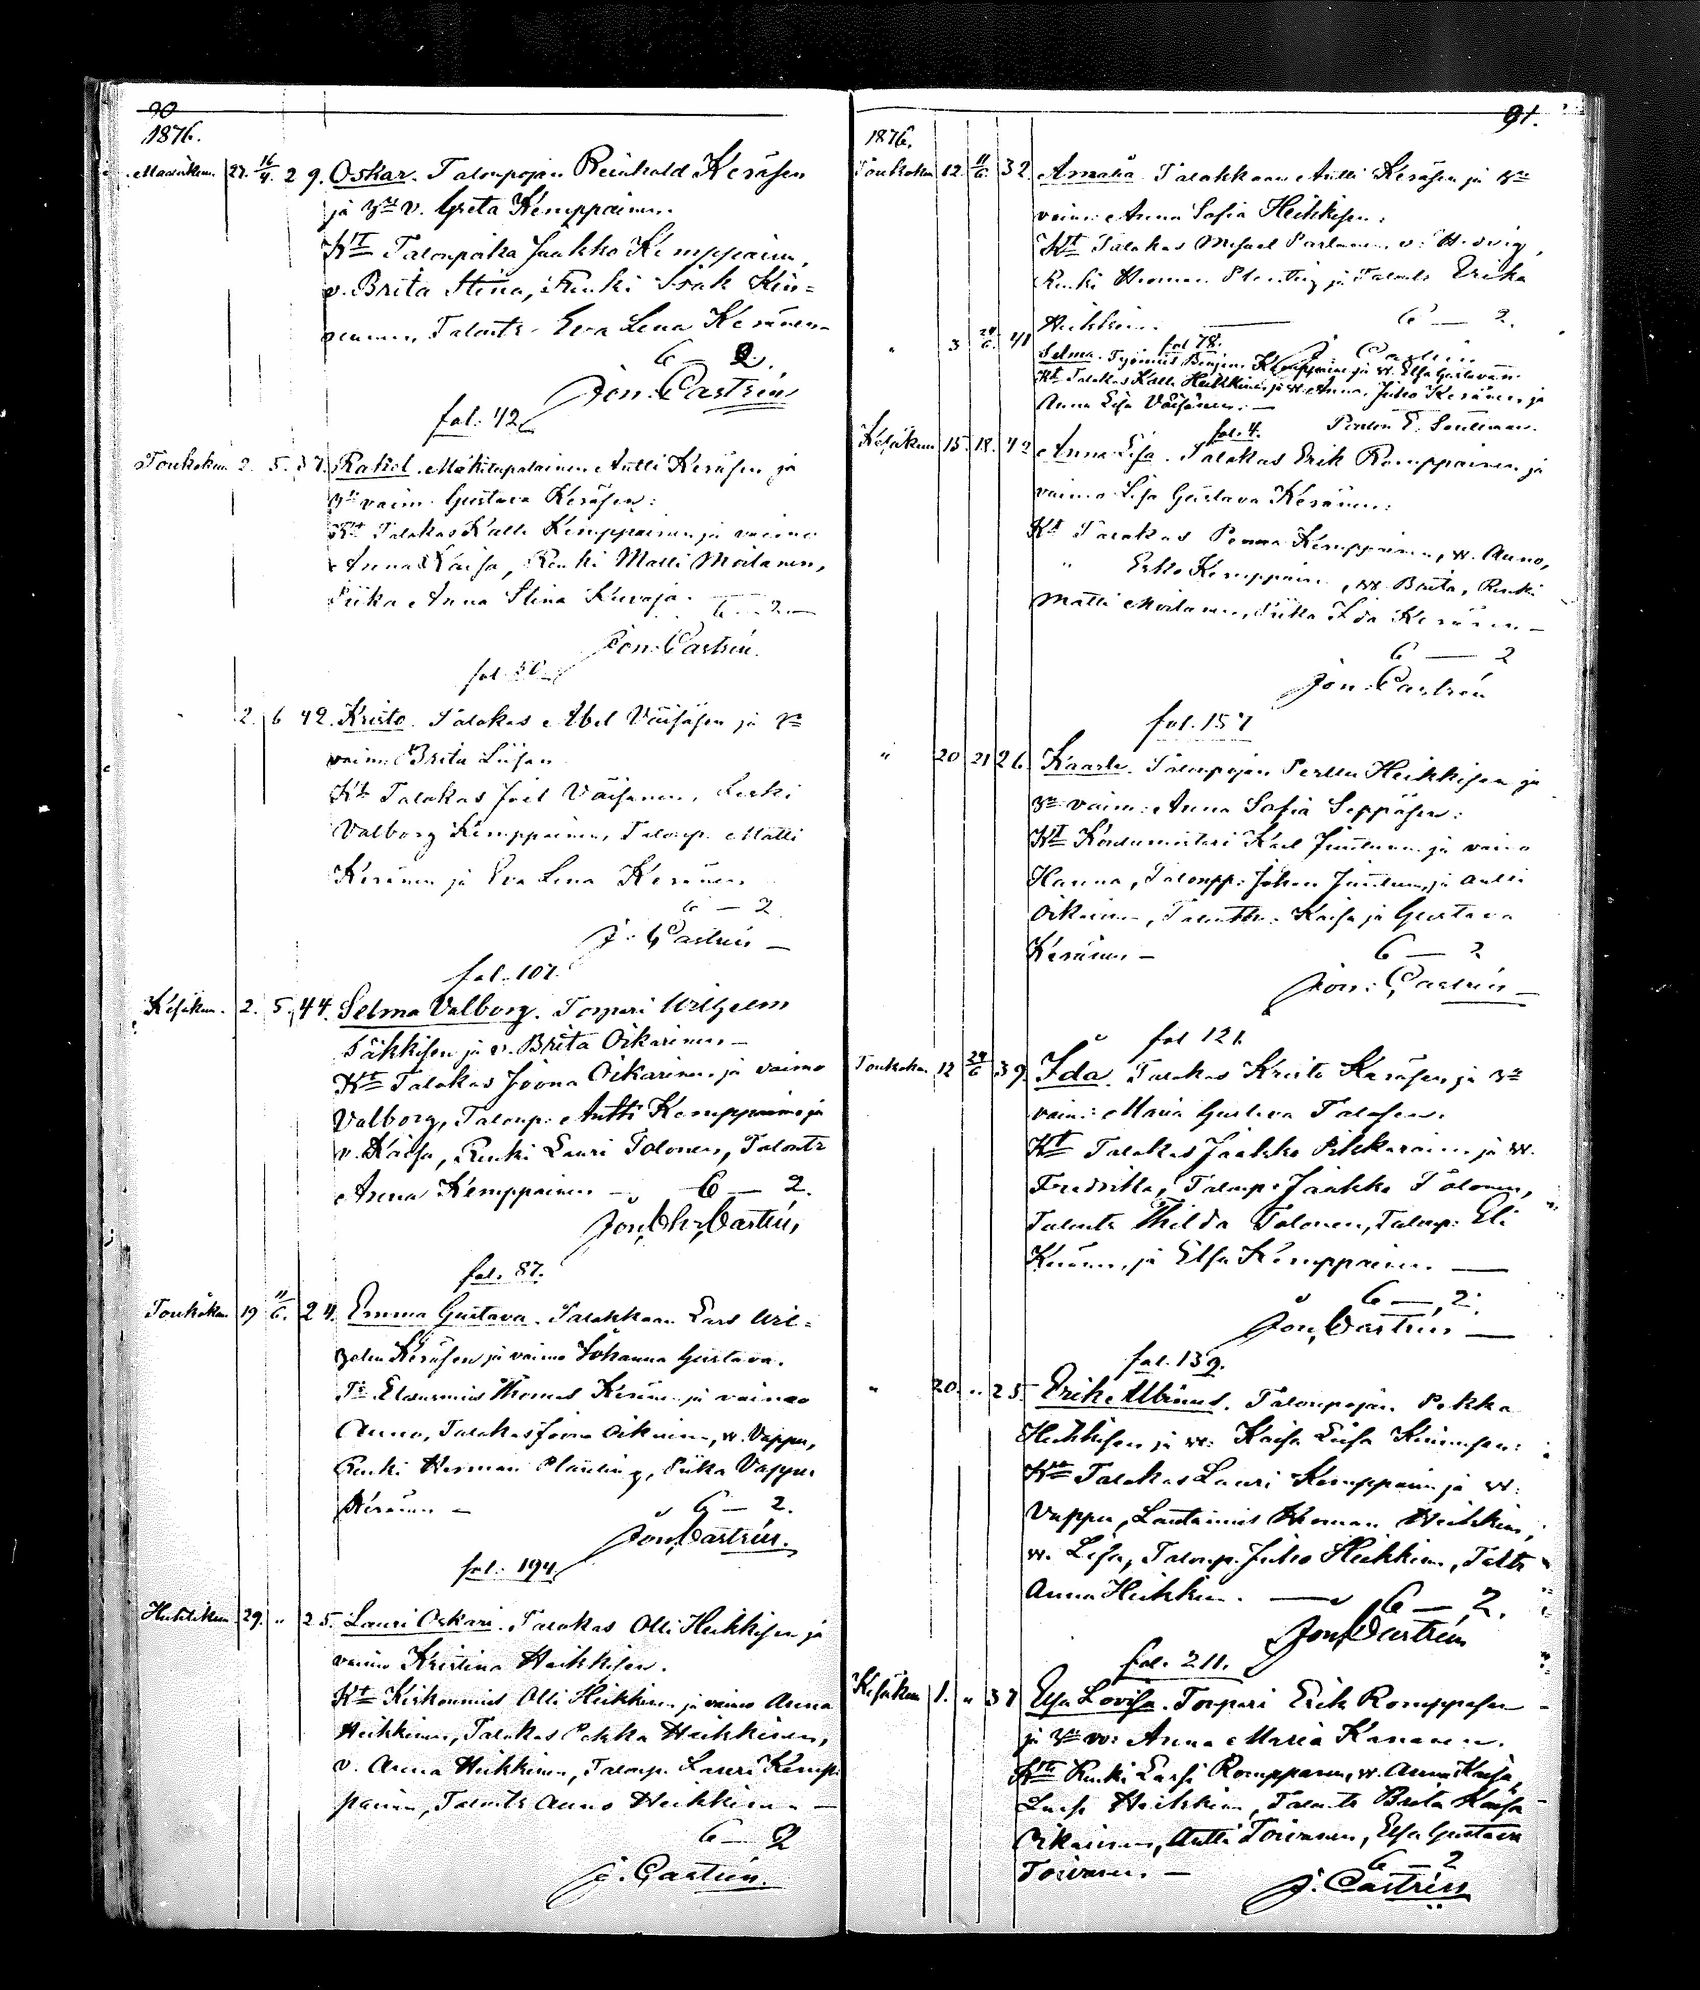 90
1876.
Maalisku. 27. 16/4. 29. Oskar. Talonpojan Reinhold Keräsen
ja v. Greta Kemppainen.
Kt Talonpoika Jaakko Kemppainen,
v. Brita Stina, Renki Isak Kin=
nunen, Talontr. Eva Lena Keränen
6 — 2.
Jon. Castrén
fol. 42
Toukokuu 2. 5. 37. Rakel. Mäkitupalainen Antti Keräsen ja
vaim. Gustava Keräsen:
Kt Talokas Kalle Kemppainen ja vaimo
Anna Kaisa, Renki Matti Moilanen,
Piika Anna Stina Kuvaja. 6 — 2 —
Jon. Castrén.
fol. 80
2. 6 42. Kristo. Talokas Abel Väisäsen ja
vaim. Brita Liisan
Kt Talokas Joel Väisänen, Leski
Valborg Kemppainen, Talonp. Matti
Keränen ja Eva Lena Keränen
6 — 2
J. Castrén —
fol. 107.
Kesäkuu. 2. 5. 44. Selma Valborg. Torpari Wilhelm
ja v. Brita Oikarinen —
Kt Talokas Joona Oikarinen ja vaimo
Valborg, Talonp. Antti Kemppainen ja
v. Kaisa, Renki Lauri Tolonen, Talontr
Anna Kemppainen — 6 — 2.
Jon. Chr. Castrén,
fol. 87.
Toukokuu 19 11/6. 24. Emma Gustava. Talokkaan Lars Wil=
helm Keräsen ja vaimo Johanna Gustava.
Thomas Keränen ja vaimo
Anna, Talokas Joona Oikarinen, w. Vappu,
Renki Herman Planting, Piika Vappu
Keränen — 6 — 2.
Jon. Castrén.
fol. 194
Huhtikuu 29. " 25. Lauri Oskari. Talokas Olli Heikkisen ja
vaimo Kristina Heikkisen.
Kt Kirkonmies Olli Heikkinen ja vaimo Anna
Heikkinen, Talokas Pekka Heikkinen,
v. Anna Heikkinen, Talonp. Lauri Kemp-
painen, Talontr Anna Heikkinen —
6 — 2
J. Castrén.
91.
1876.
Toukokuu 12 11/6. 32. Amalia. Talokkaan Antti Keräsen ja
vaim. Anna Sofia Heikkisen:
Kt Talokas Mikael Partanen, v. Hedvig,
Renki Herman Planting ja Talontr Erika
Heikkinen. — 6 — 2.
fol 78. J. Castrén
" 3 41 Selma. Työmies Benjam. Kemppainen ja w. Elsa Gustavan.
Kt Talokas Kalle Heikkinen ja w. Anna, Juho Keränen ja
Anna Lisa Väisänen. —
fol. 4.
Kesäkuu 15. 18. 42 Anna Lisa. Talokas Erik Romppainen ja
vaimo Lisa Gustava Keränen:
Kt Talokas Kemppainen, w. Anna,
" Erkki Kemppainen, w. Brita, Renki
Matti Moilanen, Piika Ida Keränen —
6 — 2
Jon. Castrén
fol. 157
" 20 21 26. Kaarle. Talonpojan Perttu Heikkisen ja
vaim. Anna Sofia Seppäsen:
Kt Karl Juntunen ja vaimo
Hanna, Talonpp. Johan Juntunen ja Antti
Oikarinen, Talontr. Kaisa ja Gustava
Keränen — 6 — 2
Jon. Castrén —
fol 121.
Toukokuu 12 24/6 39. Ida. Talokas Kristo Keräsen ja
vaim. Maria Gustava Talasen.
Kt Talokas Jaakko Pikkarainen ja w.
Fredrikka, Talonp. Jaakko Tolonen,
Talontr Thilda Tolonen, Talonp. Eli
Keränen ja Elsa Kemppainen. —
6 — 2.
Jon. Castrén —
fol. 139.
" 20. " 25 Erik Albinus. Talonpojan Pekka
Heikkisen ja w. Kaisa Liisa Kinnusen:
Kt Talokas Lauri Kemppainen ja w.
Vappu, Lautamies Herman Heikkinen,
w. Lisa, Talonp. Juho Heikkinen, Taltr
Anna Heikkinen. — 6 — 2.
Jon. Castrén
fol. 211.
Kesäkuu 1. " 37 Elsa Lovisa. Torpari Erik Romppasen
ja w. Anna Maria Kananen.
Kt Renki Lassi Romppanen, w. Anna Kaisa,
Lassi Heikkinen, Talontr Brita Kaisa
Oikarinen, Antti Toivanen, Elsa Gustava
Toivanen. — 6 — 2
J. Castrén